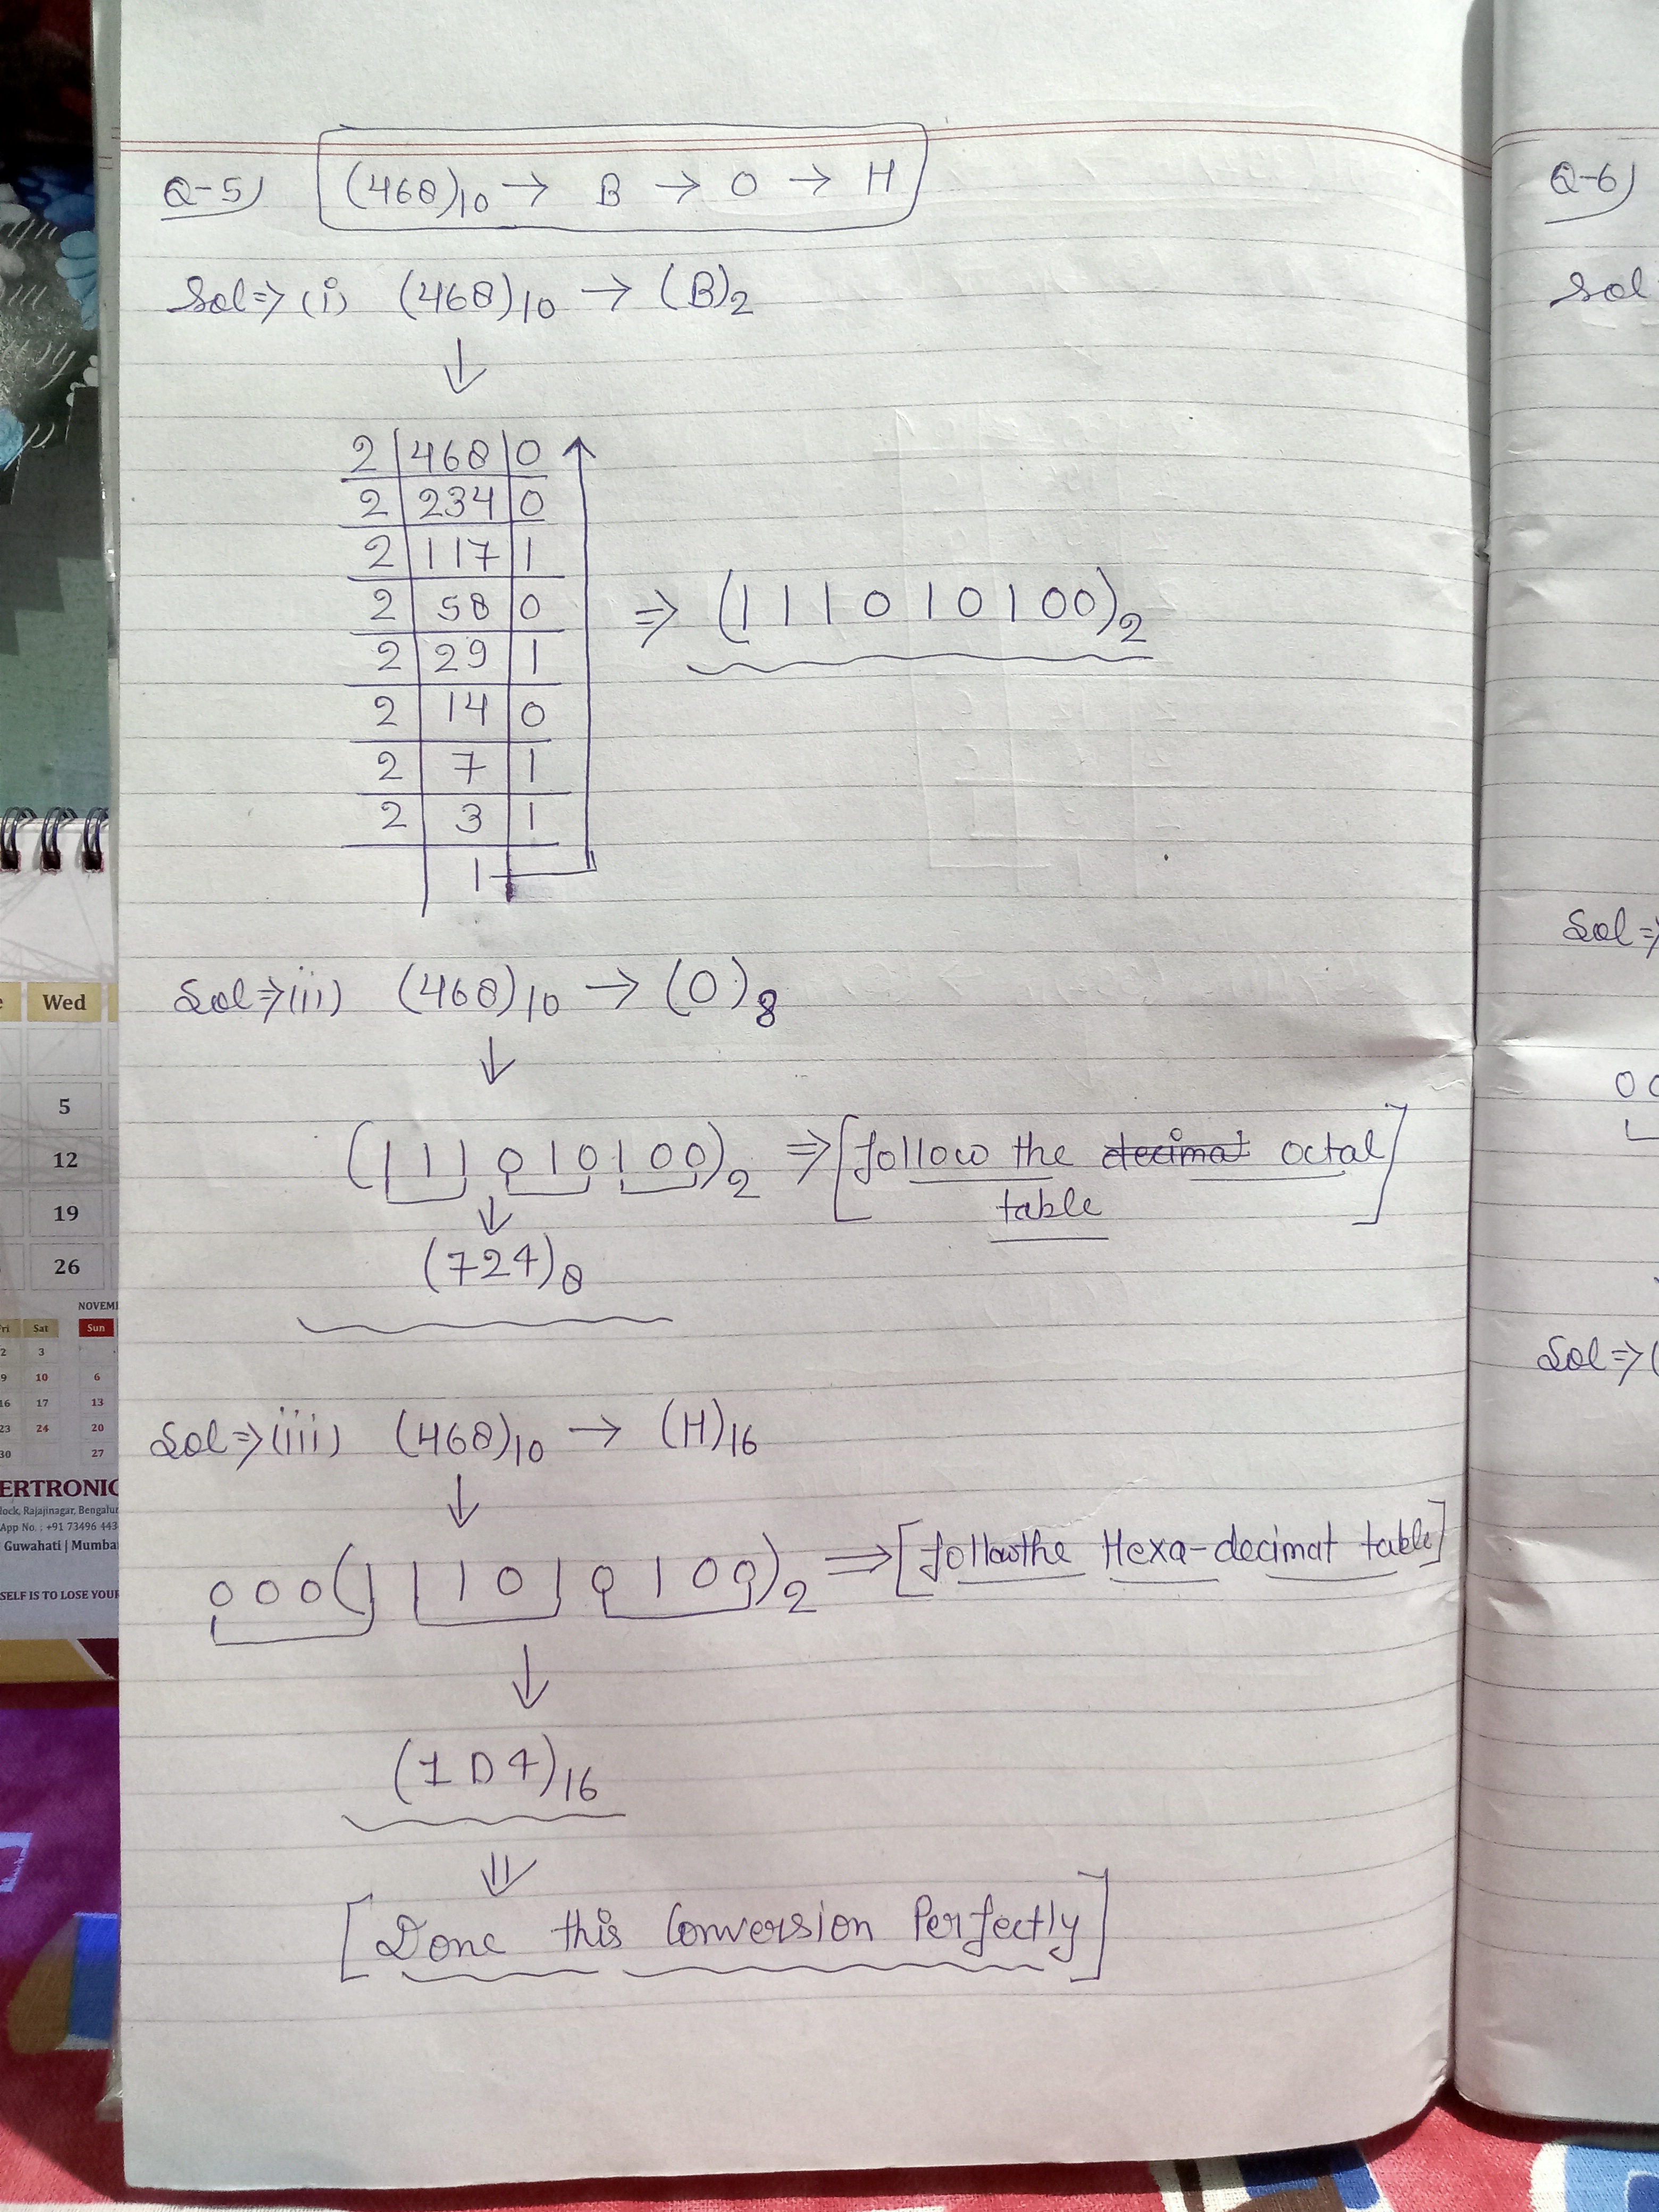 Q-5) (468)10 → B → O → H
Sol⇒ (i) (468)10 → (B)2
↓
2 | 468 | 0
2 | 234 | 0
2 | 117 | 1
2 | 58 | 0
2 | 29 | 1
2 | 14 | 0
2 | 7 | 1
2 | 3 | 1
1
⇒ (111010100)2
Sol⇒ (ii) (468)10 → (O)8
↓
(111010100)2 ⇒ [follow the decimal octal
table]
↓
(724)8
Sol⇒ (iii) (468)10 → (H)16
↓
000(111010100)2 ⇒ [follow the Hexa-decimal table]
↓
(1D4)16
⇓
[Done this Conversion Perfectly]
Q-6)
Sol
Sol⇒
00
Sol⇒(
Wed
5
12
19
26
NOVEM
Fri Sat Sun
2 3
9 10 6
16 17 13
23 24 20
30 27
ERTRONIC
lock, Rajajinagar, Bengalur
App No. : +91 73496 443
Guwahati | Mumba
SELF IS TO LOSE YOUR